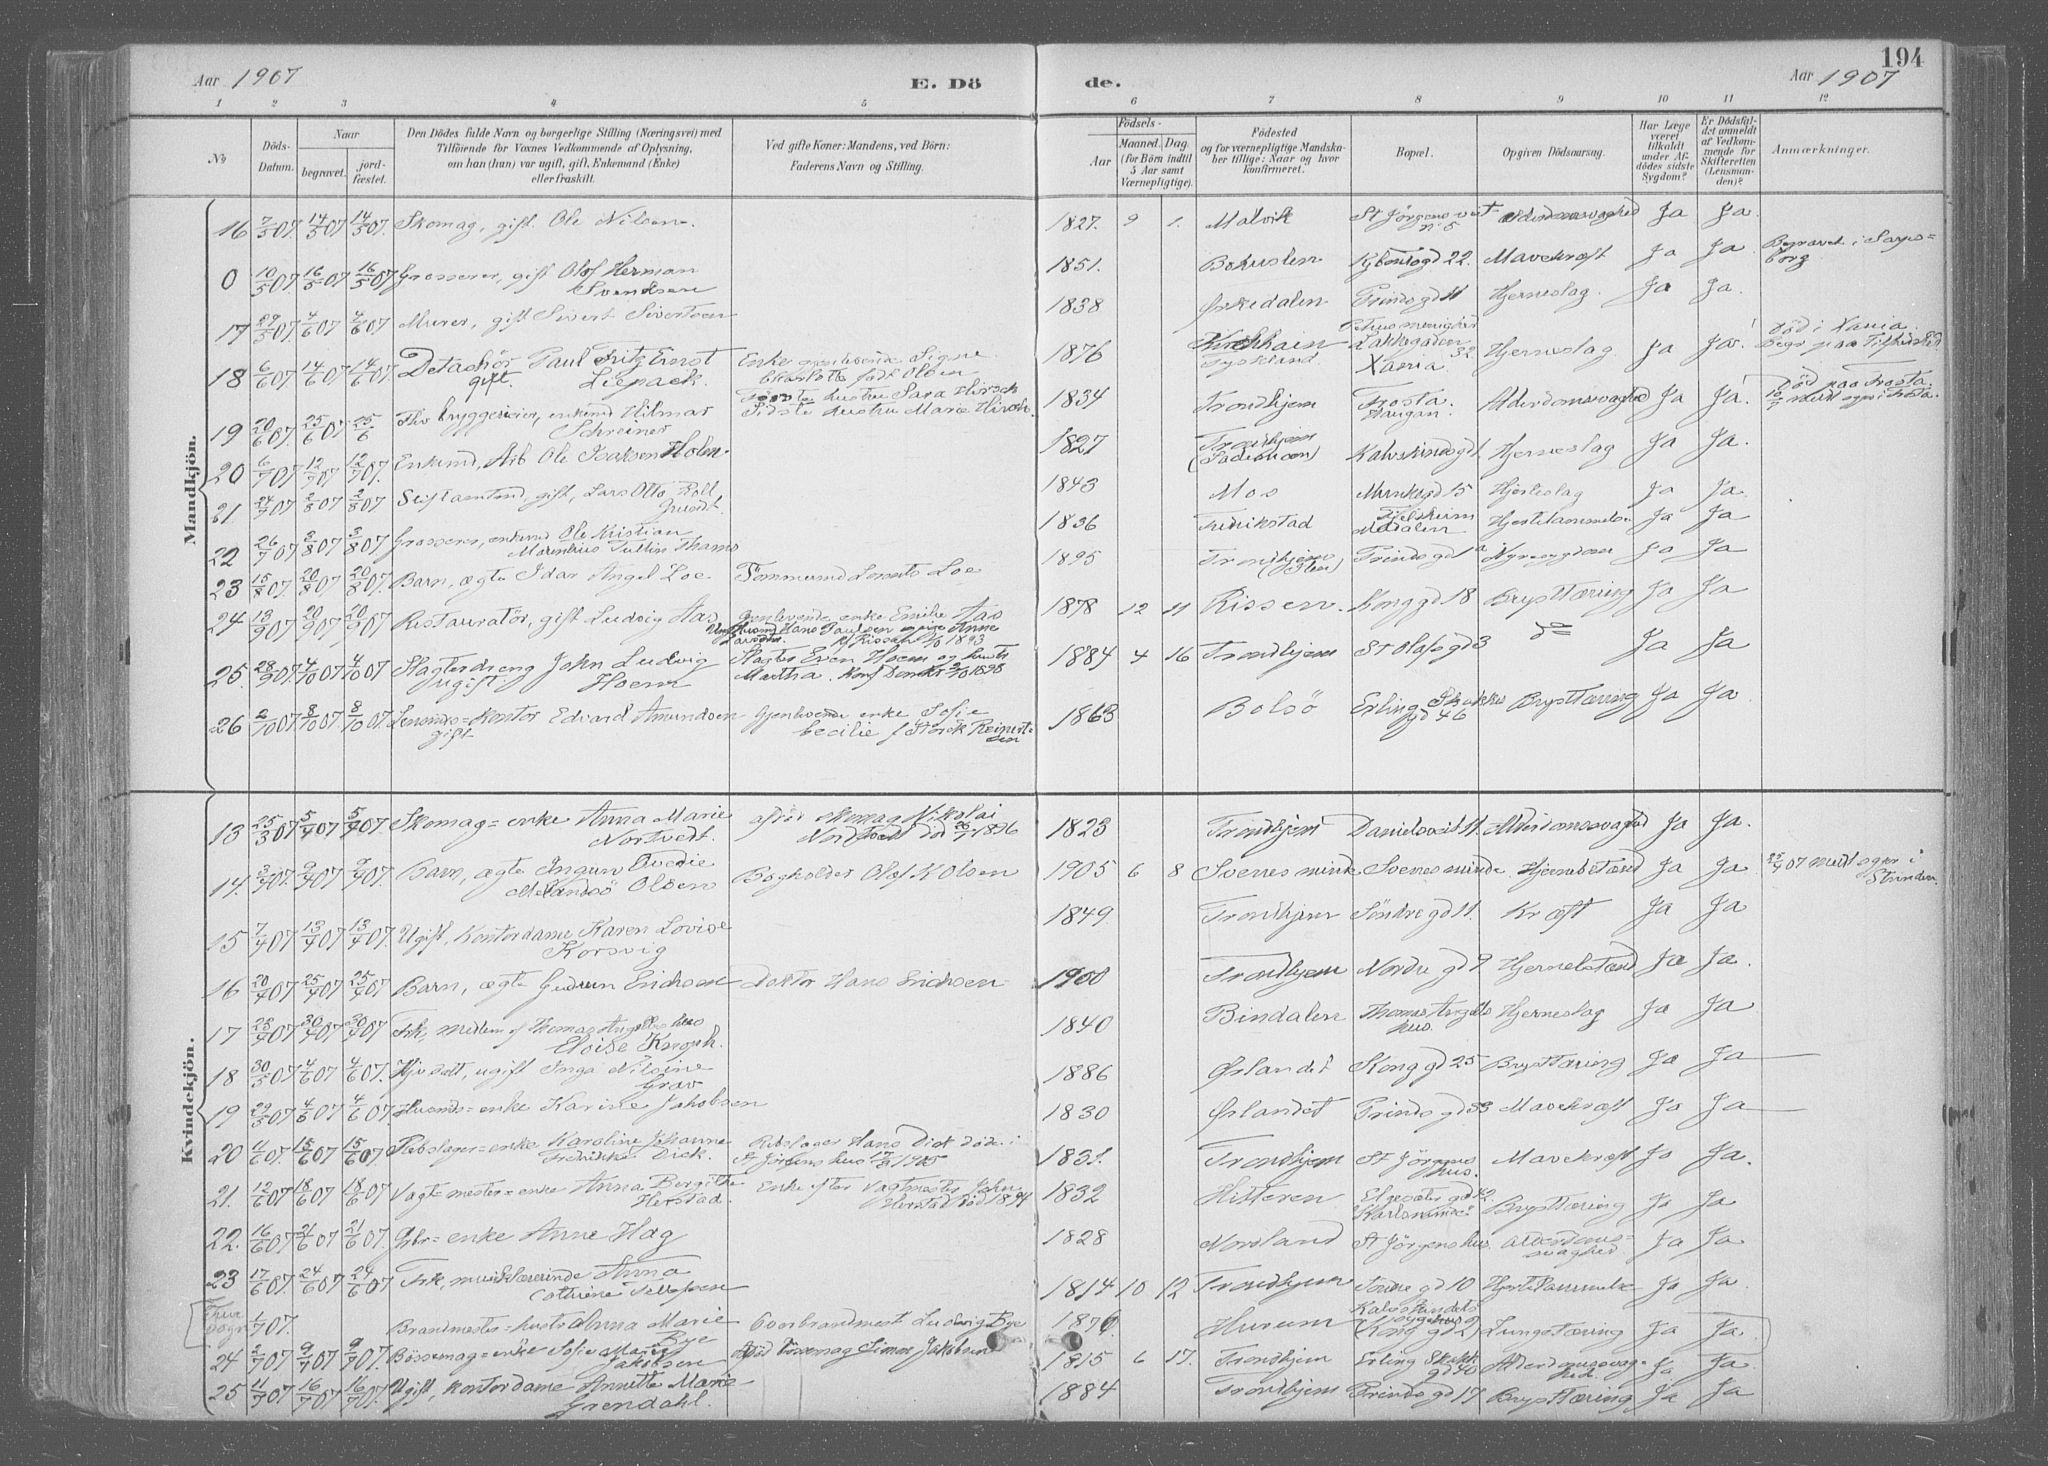 194
Aar 1907
E. Dö
de.
Aar 1907
1 2 3 4 5 6 7 8 9 10 11 12
No
Döds-Datum.
Naar
begravet.
jord-fæstet.
Den Dödes fulde Navn og borgerlige Stilling (Næringsvei) med
Tilföiende for Voxnes Vedkommende af Oplysning,
om han (hun) var ugift, gift, Enkemand (Enke)
eller fraskilt.
Ved gifte Koner: Mandens, ved Börn:
Faderens Navn og Stilling.
Födsels-
Aar
Maaned. Dag.
(for Börn indtil
5 Aar samt
Værnepligtige).
Födested
og for værnepligtige Mandska-
ber tillige: Naar og hvor
konfirmeret.
Bopæl.
Opgiven Dödsaarsag.
Har Læge
været
tilkaldt
under Af-
dödes sidste
Sygdom?
Er Dödsfal-
det anmeldt
af Vedkom-
mende for
Skifteretten
(Lensman-
den)?
Anmærkninger.
Mandkjön.
16 7/5 07. 14/5 07 14/5 07. Skomag, gift. Ole Nilsen. 1827. 9 1. Malvik St Jörgens veit n. 5 Alderdomssvaghed Ja Ja.
0 10/5 07. 16/5 07 16/5 07 Grosserer, gift Olof Herman
Svendsen 1851. Bohuslen Kjbmsgd 22. Mavekræft Ja Ja Begravet i Sarps=
borg
17 29/5 07. 4/6 07 4/6 07. Murer, gift Sivert Sivertsen 1838 Ørkedalen Prindsgd 11 Hjerneslag. Ja Ja.
18 6/6 07. 14/6 07 14/6 07. Paul Fritz Ernst
gift. Liepack. Enke gjenlevende Signe
Charlotte født Olsen 1876 Kirchhain
Tyskland Petrus menighed
Lakkegaden 32
Xania Hjerneslag Ja Ja Död i Xania.
19 20/6 07. 25/6 07 25/6 Thv bryggerieier, enkemd Hilmar
Schreiner Første hustru Sara Hirsch
Sidste hustru Marie Hirsch. 1834 Trondhjem Frosta
Haugan. Alderdomssvaghed Ja Ja. Död paa Frosta.
20 6/7 07. 12/7 07 12/7 07. Enkemd, Arb Ole Isaksen Holm. 1827 Trondhjem Kalvskindsgd 1. Hjerneslag Ja Ja.
21. 24/7 07. 2/8 07 2/8 07 gift, Lars Otto Roll
Grundt. 1843 Mos Munkegd 15 Hjerteslag Ja Ja.
22 26/7 07 3/8 07 3/8 07 Grosserer, enkemd Ole Kristian
Marentius Tullin Thams 1836 Fredrikstad Ja Ja
23 15/8 07. 20/8 07 20/8 07. Barn, ægte Idar Angel Loe Tömmermd Lorents Loe 1895 Trondhjem
(Ilen) Prindsgd 1a Nyresygdom Ja Ja
24 13/9 07 20/9 07 20/9 07 Restauratör, gift Ludvig Aas Gjenlevende enke Emilie Aas 1878 12 11 Rissen. Konggd 18 Brysttæring Ja Ja
25. 28/9 07. 4/10 07 4/10 07 Slagterdreng John Ludvig
ugift. Hoem Slagter Even Hoem og hustr
Martha. Konf Domkr 2/10 1898 1884 4 16 Trondhjem St Olafsgd 3 do Ja Ja
26 2/10 07. 8/10 07 8/10 07 Lensmds=kontor Edvard Amundsen
gift Gjenlevende enke Sofie
Cecilie f Storck Reinert-
sen 1863 Bolsö Erling Skakkes
gd 46 Brysttæring Ja Ja
Kvindekjön.
13 25/3 07 5/4 07 5/4 07. Skomag=enke Anna Marie
Nortvedt. afdöd skomag Nikolai
1823 Trondhjem Danielsveit 11. Alderdomssvaghed Ja Ja.
14. 3/4 07. 9/4 07 9/4 07. Barn, ægte Ingrun Ovedie
Melandsö Olsen Bogholder Olof K Olsen 1905 6 8 Svenes minde Svenes minde Hjernebetænd Ja Ja 25/4 07 meldt ogsaa i
Strinden.
15 7/4 07. 13/4 07 13/4 07. Ugift, Kontordame Karen Lovise
Korsvig 1849 Trondhjem Söndregd 11. Kræft Ja Ja
16 20/4 07 25/4 07 25/4 07 Barn, ægte Gudrun Erichsen Doktor Hans Erichsen 1900 Trondhjem Nordregd 9 Hjernebetænd Ja Ja.
17. 25/4 07 30/4 07 30/4 07 Frk, medlem af Thomas Angells hus
Eloise Knoph. 1840 Bindalen Thomas Angells
hus. Hjerneslag Ja Ja
18 30/5 07 4/6 07 4/6 07. ugift Inga Nilsine
Grav 1886 Ørlandet Konggd 25 Brysttæring Ja Ja
19 29/5 07 4/6 07 4/6 07. Husmds=enke Karine Jakobsen 1830 Ørlandet Prindsgd 53 Mavekræft Ja Ja
20 4/6 07. 15/6 07 15/6 07. Rebslager=enke Karoline Johanne
Fredrikke Dick. Rebslager Hans Dick döde i
St Jörgens hus 17/2 1905 1831. Trondhjem St Jörgens
hus. Mavekræft Ja Ja.
21. 12/6 07 18/6 07 18/6 07 Vagtmester=enke Anna Bergitte
Herstad. Enke efter Vagtmester John
Herstad död 1894 1832 Hitteren Elgesetergd 42
"Karlsminde" Brysttæring Ja Ja
22. 16/6 07 21/6 07 21/6 07. Arbr=enke Anne Hag 1828 Nordland St Jörgens hus Alderdoms=
svaghed Ja Ja.
23 17/6 07. 24/6 07 24/6 07 Frk, musiklærerinde Anna
Cathrine Tellefsen 1814 10 12 Trondhjem Söndregd 10 Hjertelammelse Ja Ja.
1/7 07. Brandmester=hustr Anna Marie
Bye Overbrandmest Ludvig Bye 1876 Hurum Kalvskindets
sygehus
(Konggd 2) Lungetæring Ja Ja
24 2/7 07 9/7 07 9/7 07. Bössemag=enke Sofie Marie
Jakobsen Afdöd bössemag Simon Jakobsen 1815 6 17. Trondhjem Erling Skakk
gd 40 Alderdomssvag=
hed. Ja Ja
25 11/7 07 16/7 07 16/7 07. Ugift, kontordame Annette Marie
Grendahl. 1884 Trondhjem Prindsgd 17 Brysttæring Ja Ja